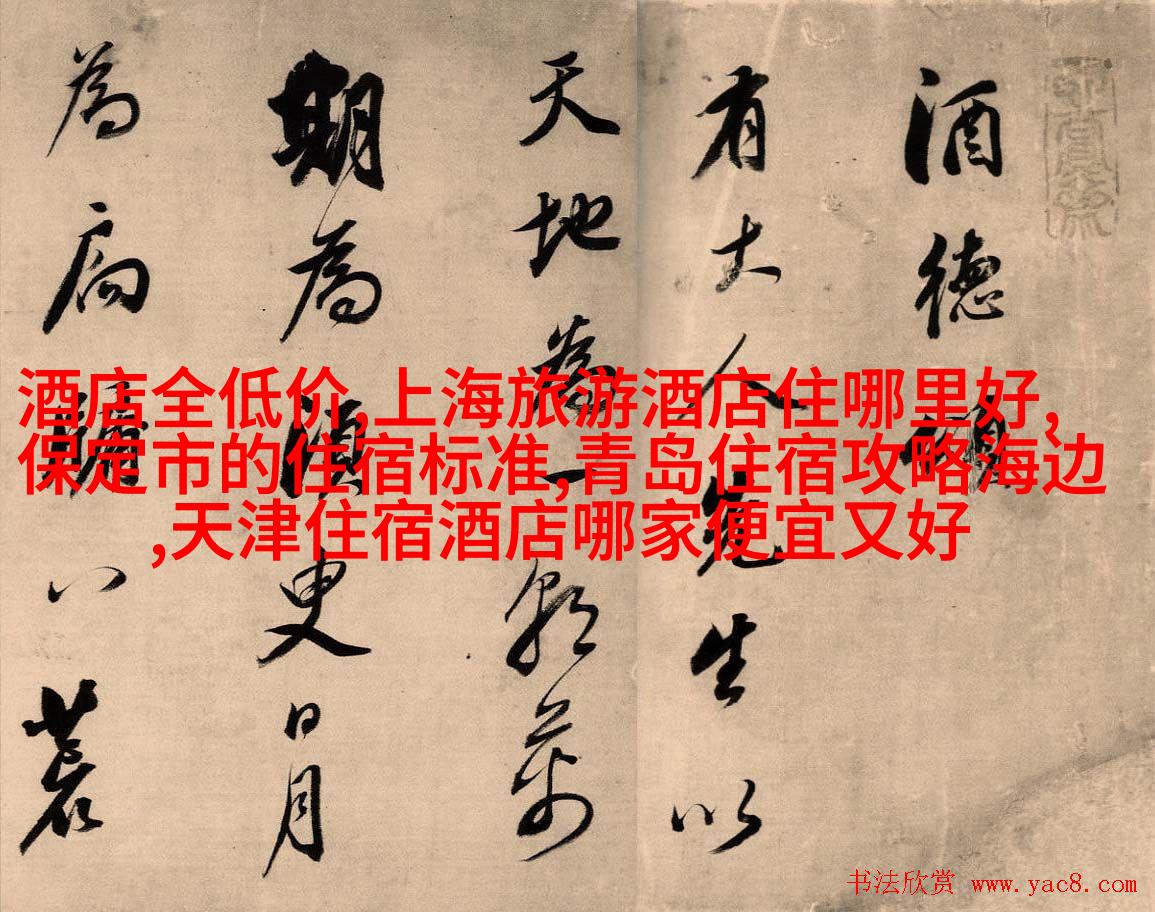 酒德頌
有大人先生以
天地為一朝萬
期為須臾日月
為扃牖八荒
酒店全低价,上海旅游酒店住哪里好,
保定市的住宿标准,青岛住宿攻略海边
,天津住宿酒店哪家便宜又好
书法欣赏 www.yac8.com